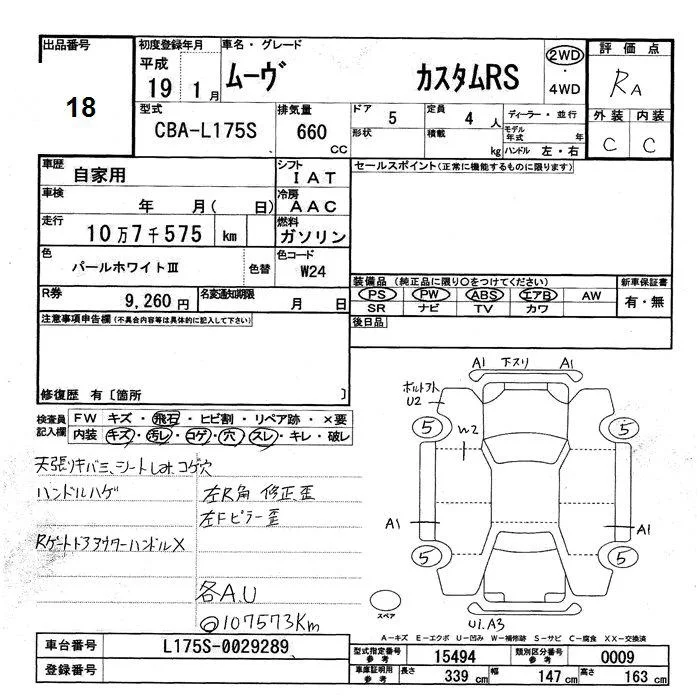 出品番号
18
初度登録年月
平成
19 1月
車名・グレード
ムーヴ カスタムRS
2WD
・
4WD
評価点
RA
外装 内装
C C
型式
CBA-L175S
排気量
660 cc
ドア 5
形状
定員 4 人
積載 kg
ディーラー・並行
モデル年式 年
ハンドル 左・右
車歴
自家用
シフト
IAT
セールスポイント(正常に機能するものに限ります)
車検
年 月( 日)
冷房
AAC
走行
10万7千575 km
燃料
ガソリン
色
パールホワイトⅢ
色替
色コード
W24
装備品 (純正品に限り○をつけてください)
PS PW ABS エアB AW
SR ナビ TV カワ
新車保証書
有・無
R券
9,260円
名変通知期限
月 日
後日品
注意事項申告欄(不具合内容等は具体的に記入して下さい)
修復歴 有〔箇所 〕
検査員記入欄
FW キズ・飛石・ヒビ割・リペア跡・×要
内装 キズ・汚レ・コゲ・穴・スレ・キレ・破レ
天張りキバミ、シートLat. コゲ穴
ハンドルハゲ
左R角 修正歪
左Fピラー歪
Rゲートドアアウターハンドル×
各A.U
@107573Km
A1 下スリ A1
ボルト
U2
5 5
W2
A1 A1
5 5
スペア
U1.A3
A-キズ E-エクボ U-凹み W-補修跡 S-サビ C-腐食 XX-交換済
車台番号
L175S-0029289
登録番号
型式指定番号
参考
15494
類別区分番号
参考
0009
車庫証明用
参考
長さ 339 cm
幅 147 cm
高さ 163 cm